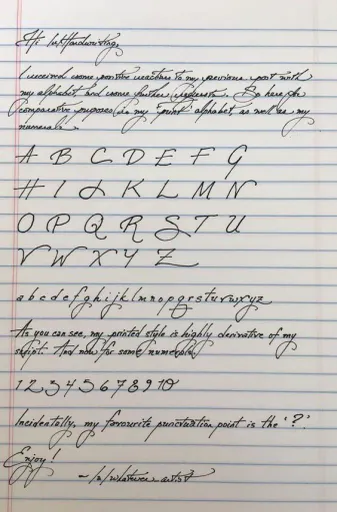 Hi /r/Handwriting,
I received some positive reactions to my previous post with
my alphabet, and some further requests. So here, for
comparative purposes is my 'print' alphabet, as well as my
numerals.
A B C D E F G
H I J K L M N
O P Q R S T U
V W X Y Z
a b c d e f g h i j k l m n o p q r s t u v w x y z
As you can see, my printed style is highly derivative of my
script. And now for some numerals,
1 2 3 4 5 6 7 8 9 10
Incidentally, my favourite punctuation point is the '?'
Enjoy!
- /u/ artist